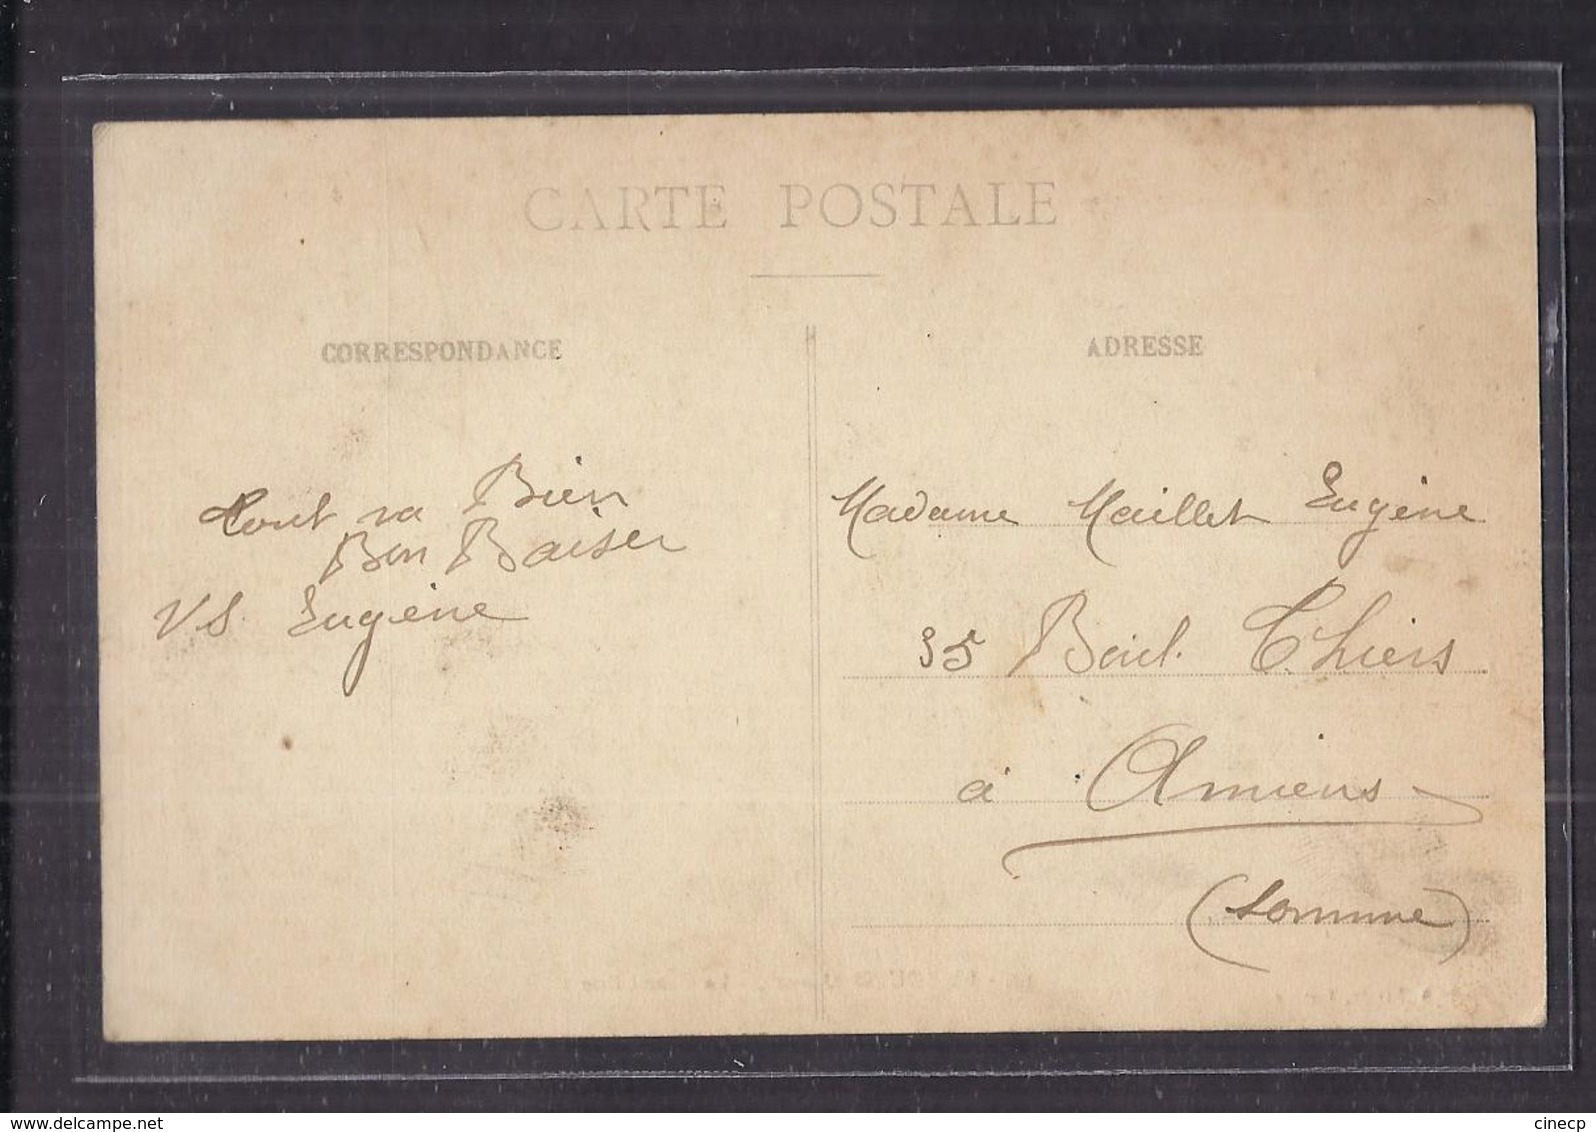 CARTE POSTALE
CORRESPONDANCE
Tout va Bien
Bon Baiser
VS. Eugène
ADRESSE
Madame Maillet Eugène
35 Boul. Thiers
à Amiens
(Somme)
www.delcampe.net
cinecp